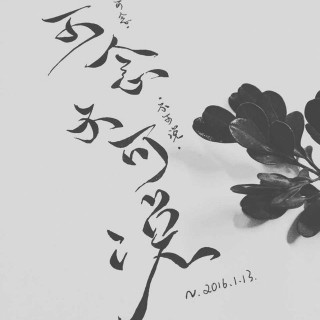 可念
可念
不可说
不可说
N. 2016.1.13.